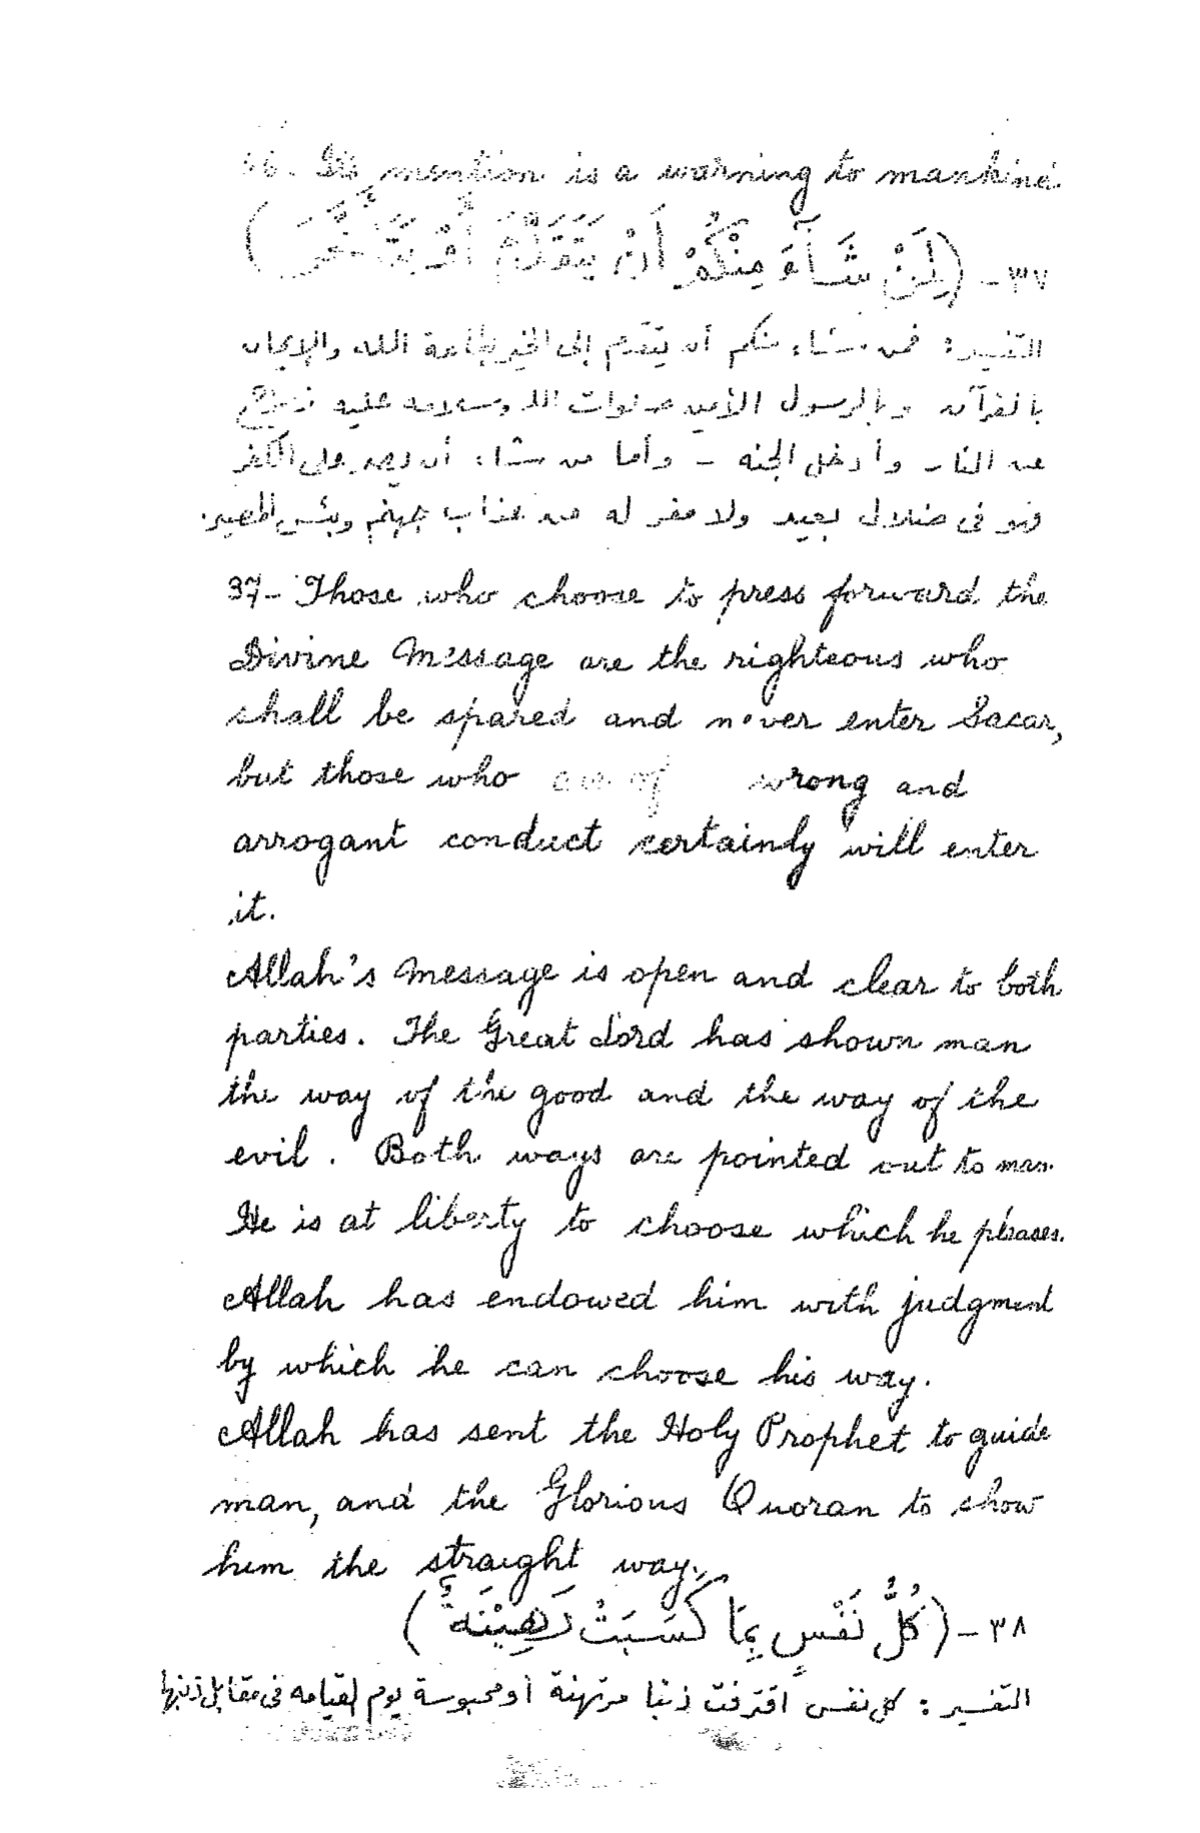 36. Its mention is a warning to mankind
٣٧- (لِمَنْ شَآءَ مِنْكُمْ أَنْ يَتَقَدَّمَ أَوْ يَتَأَخَّرَ)
التفسير: فمن شاء منكم أن يتقدم إلى الخير بطاعة الله والإيمان
بالقرآن وبالرسول الأمين صلوات الله وسلامه عليه
عن النار وأدخل الجنه - وأما من شاء أن يصر على الكفر
فهو فى ضلال بعيد ولا مفر له من عذاب جهنم وبئس المصير.
37- Those who choose to press forward the
Divine Message are the righteous who
shall be spared and never enter Sacar,
but those who are of wrong and
arrogant conduct certainly will enter
it.
Allah's Message is open and clear to both
parties. The Great Lord has shown man
the way of the good and the way of the
evil. Both ways are pointed out to man.
He is at liberty to choose which he pleases.
Allah has endowed him with judgment
by which he can choose his way.
Allah has sent the Holy Prophet to guide
man, and the Glorious Quoran to show
him the straight way.
٣٨- (كُلُّ نَفْسٍ بِمَا كَسَبَتْ رَهِينَةٌ)
التفسير: كل نفس اقترفت ذنبا مرتهنة أو محبوسة يوم القيامه فى مقابل ذنبها